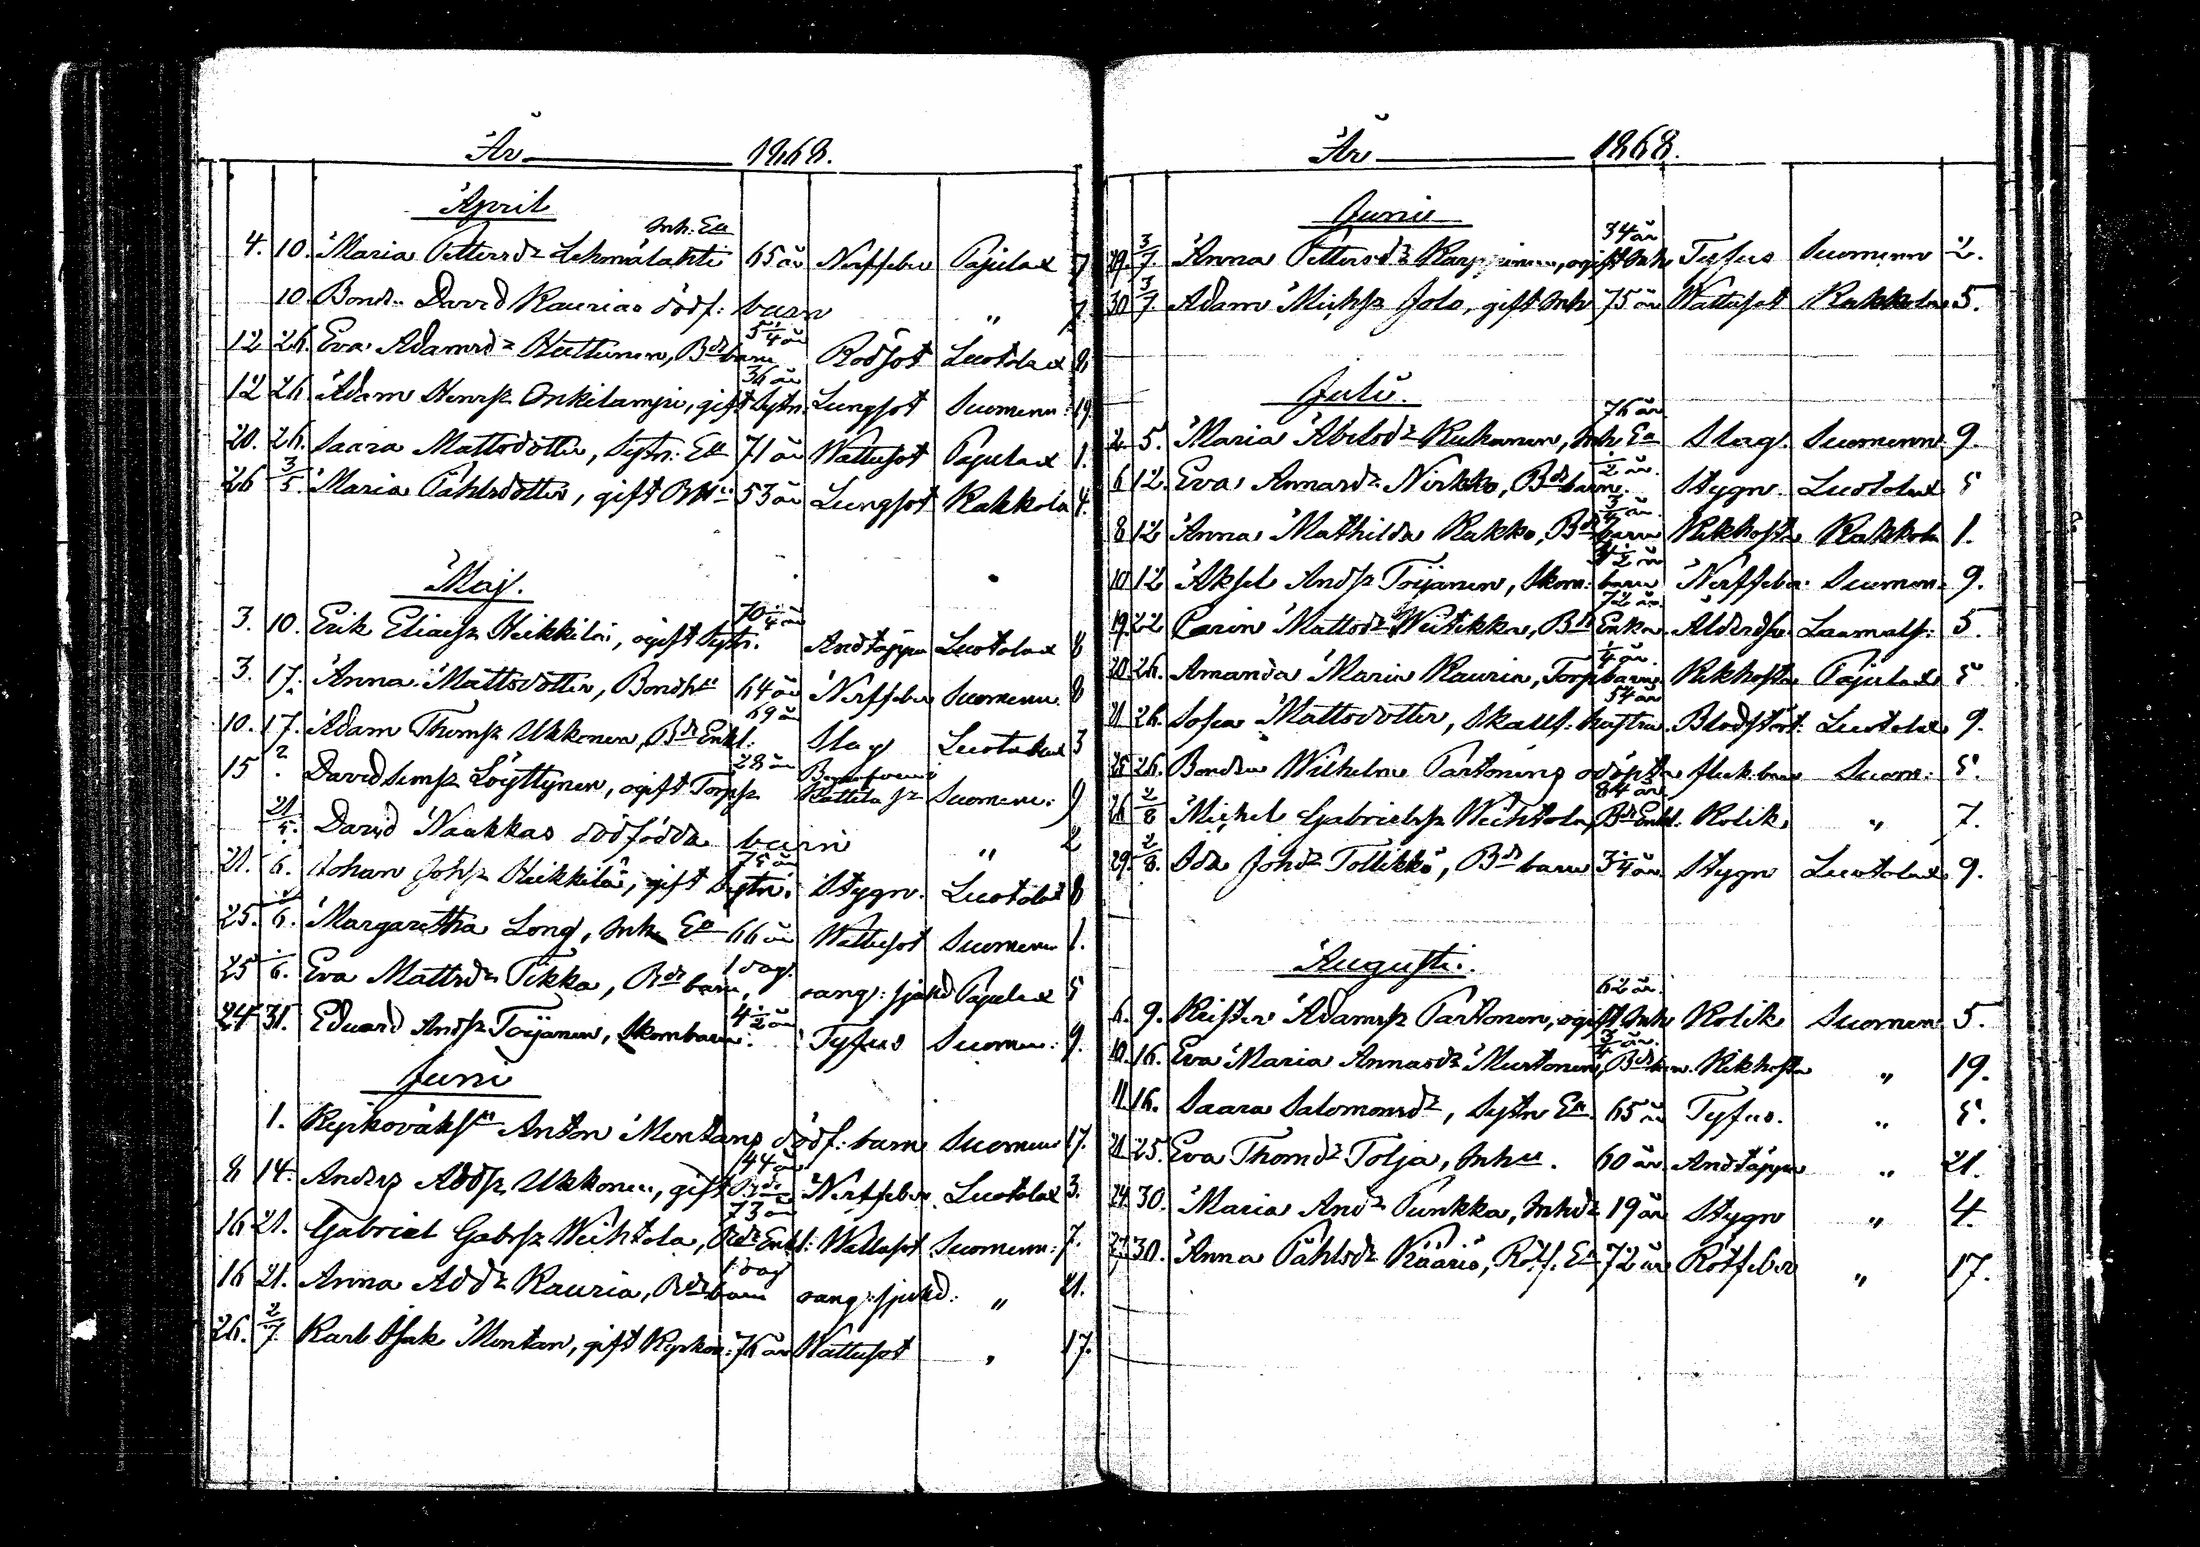 År 1868.
April
4. 10. Maria Pettersdr Lehmälahti Inh: Ea 65 år Nerffeber Pajulax 7
10. Bond: David Kaurias dödf: barn " 7.
12 26. Eva Adamsdr Huttunen, Bds barn 5 1/4 år Rödsot Luotolax 8
12 26. Adam Henrsr Onkilampi, gift Sytn: 36 år Lungsot Suomenn: 19.
20. 26. Saara Mattsdotter, Sytn: Ea 71 år Wattusot Pajulax 1.
26 3/5. Maria Påhlsdotter, gift 53 år Lungsot Kakkola 4.
Maj.
3. 10. Erik Eliaesr Heikkilä, ogift Sytn. 70 1/4 år Andtäppa Luotolax 8
3. 17. Anna Mattsdotter, Bondh: 64 år Nerffeber Suomenn. 8
10. 17. Adam Thomsr Ukkonen, Bds Enkl: 69 år Slag Luotolax 3
15 ?. David Simsr Löyttynen, ogift Torpsr 28 år Suomenn: 9
21/5. David Naakkas dödfödda barn " 2
21. /6. Johan Johsr Heikkilä, gift Sytn: 75 år Stygn. Luotolax 8
25. /6. Margaretha Long, Inh Ea 66 år Wattusot Suomenn 1.
25 /6. Eva Mattsdr Tikka, Bds barn, 1 dag. oang: sjukd Pajulax 5
24 31. Eduard Andsr Toijanen, Skom barn. 4 1/2 år Tyfus Suomen: 9.
Juni
1. Anton Montans dödf: barn Suomen 17.
8 14. Anders Addsr Ukkonen, gift Bds 44 år Nerffeber Luotolax 3.
16 21. Gabriel Gabrsr Weihtola, Bds Enkl: 73 år Wattusot Suomenn: 7.
16 21. Anna Addr Kauria, Bds barn 1 dag oang: sjukd: " 21.
26. 2/7 Karl Isak Montan, gift 76 år Wattusot " 17.
År 1868.
Junii
29. 3/7. Anna Pettersdr Karppinen, ogift Inh 34 år Tyfus Suomenn 2.
30 3/7. Adam Michsr Jolo, gift Inh 75 år Wattusot Kakkola 5.
Juli.
2 5. Maria Abelsdr Kukonen, Inh Ea 76 år Slag. Suomenn 9.
6 12. Eva Annasdr Nirkko, Bds barn. 1/2 år. Stygn. Luotolax 5
8 12 Anna Mathilda Kakko, Bds barn 3/4 år. Kikhosta Kakkola 1.
10 12 Aksel Andsr Toijanen, Skom: barn 1/2 år Nerffeber: Suomen: 9.
19. 22 Carin Mattsdr Weitikka, Bds Enka 72 år. Ålderds. Laamals: 5.
20. 26. Amanda Maria Kauria, Torp barn 1/4 år. Kikhosta Pajulax 5
21 26. Sofia Mattsdotter, Skallf: hustru 54 år Blodstört. Luotolax 9.
25 26. Bonden Wilhelm Partonens odöpta flick: barn Suom: 5.
26 2/8 Michel Gabrielsr Weihtola, Bds Enkl. 84 år Kolik " 7.
29. 2/8. Ida Johdr Tollikko, Bds barn 3 1/4 år Stygn Luotolax 9.
Augusti.
6. 9. Krister Adamsr Partonen, ogift Inh 62 år. Kolik Suomen 5.
10. 16. Eva Maria Annasdr Murtonen, Bds barn. 3/4 år. Kikhosta " 19.
11. 16. Saara Salomonsdr, Sytn Ea 65 år Tyfus. " 5.
21 25. Eva Thomdr Tolja, Inh. 60 år Andtäppa " 21.
24. 30. Maria Anddr Punkka, Inhdr 19 år Stygn " 4.
27. 30. Anna Påhlsdr Kääriä, Rotf. Ea 72 år Rötfeber " 17.